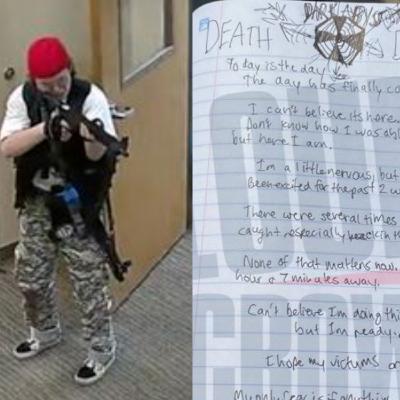 DEATH D
To day is the day
The day has finally co
I can't believe its here.
Dont know how I was abl
but here I am.
Im a little nervous, but
Been excited for the past 2 w
There were several times
caught, especially back in th
None of that matters now.
hour & 7 minutes away.
Can't believe Im doing thi
but Im ready.
I hope my victims ar
My only fear is if anything